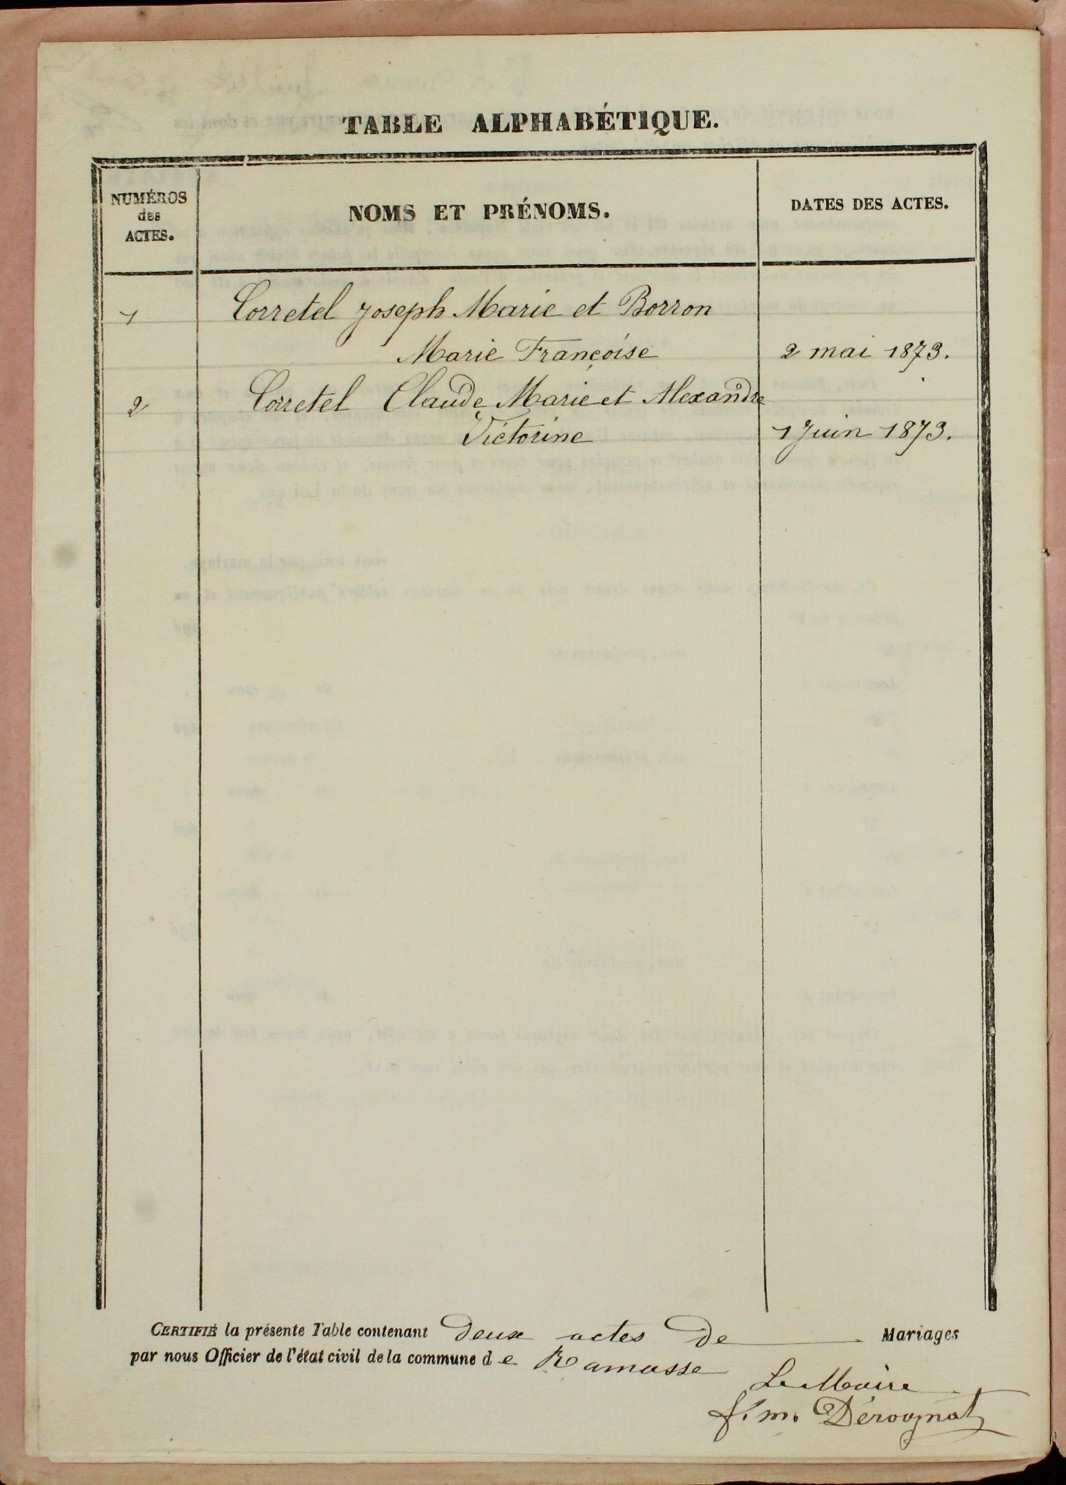 TABLE ALPHABÉTIQUE.
NUMÉROS
des
ACTES.
NOMS ET PRÉNOMS.
DATES DES ACTES.
1 Corretel Joseph Marie et Borron
Marie Françoise 2 mai 1873.
2 Corretel Claude Marie et Alexandre
Victorine 1 Juin 1873.
CERTIFIÉ la présente Table contenant deux actes de Mariages
par nous Officier de l'état civil de la commune de Ramasse
Le Maire
f. m. Dérognat